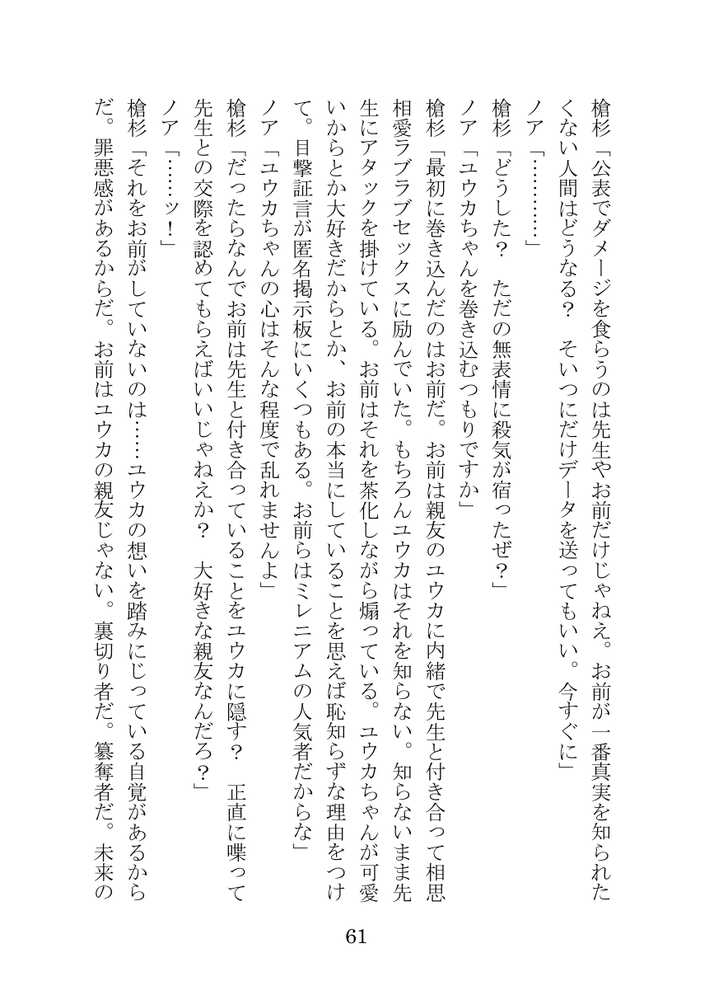 槍杉「公表でダメージを食らうのは先生やお前だけじゃねえ。お前が一番真実を知られた
くない人間はどうなる？　そいつにだけデータを送ってもいい。今すぐに」
ノア「…………」
槍杉「どうした？　ただの無表情に殺気が宿ったぜ？」
ノア「ユウカちゃんを巻き込むつもりですか」
槍杉「最初に巻き込んだのはお前だ。お前は親友のユウカに内緒で先生と付き合って相思
相愛ラブラブセックスに励んでいた。もちろんユウカはそれを知らない。知らないまま先
生にアタックを掛けている。お前はそれを茶化しながら煽っている。ユウカちゃんが可愛
いからとか大好きだからとか、お前の本当にしていることを思えば恥知らずな理由をつけ
て。目撃証言が匿名掲示板にいくつもある。お前らはミレニアムの人気者だからな」
ノア「ユウカちゃんの心はそんな程度で乱れませんよ」
槍杉「だったらなんでお前は先生と付き合っていることをユウカに隠す？　正直に喋って
先生との交際を認めてもらえばいいじゃねえか？　大好きな親友なんだろ？」
ノア「……ッ！」
槍杉「それをお前がしていないのは……ユウカの想いを踏みにじっている自覚があるから
だ。罪悪感があるからだ。お前はユウカの親友じゃない。裏切り者だ。簒奪者だ。未来の
61